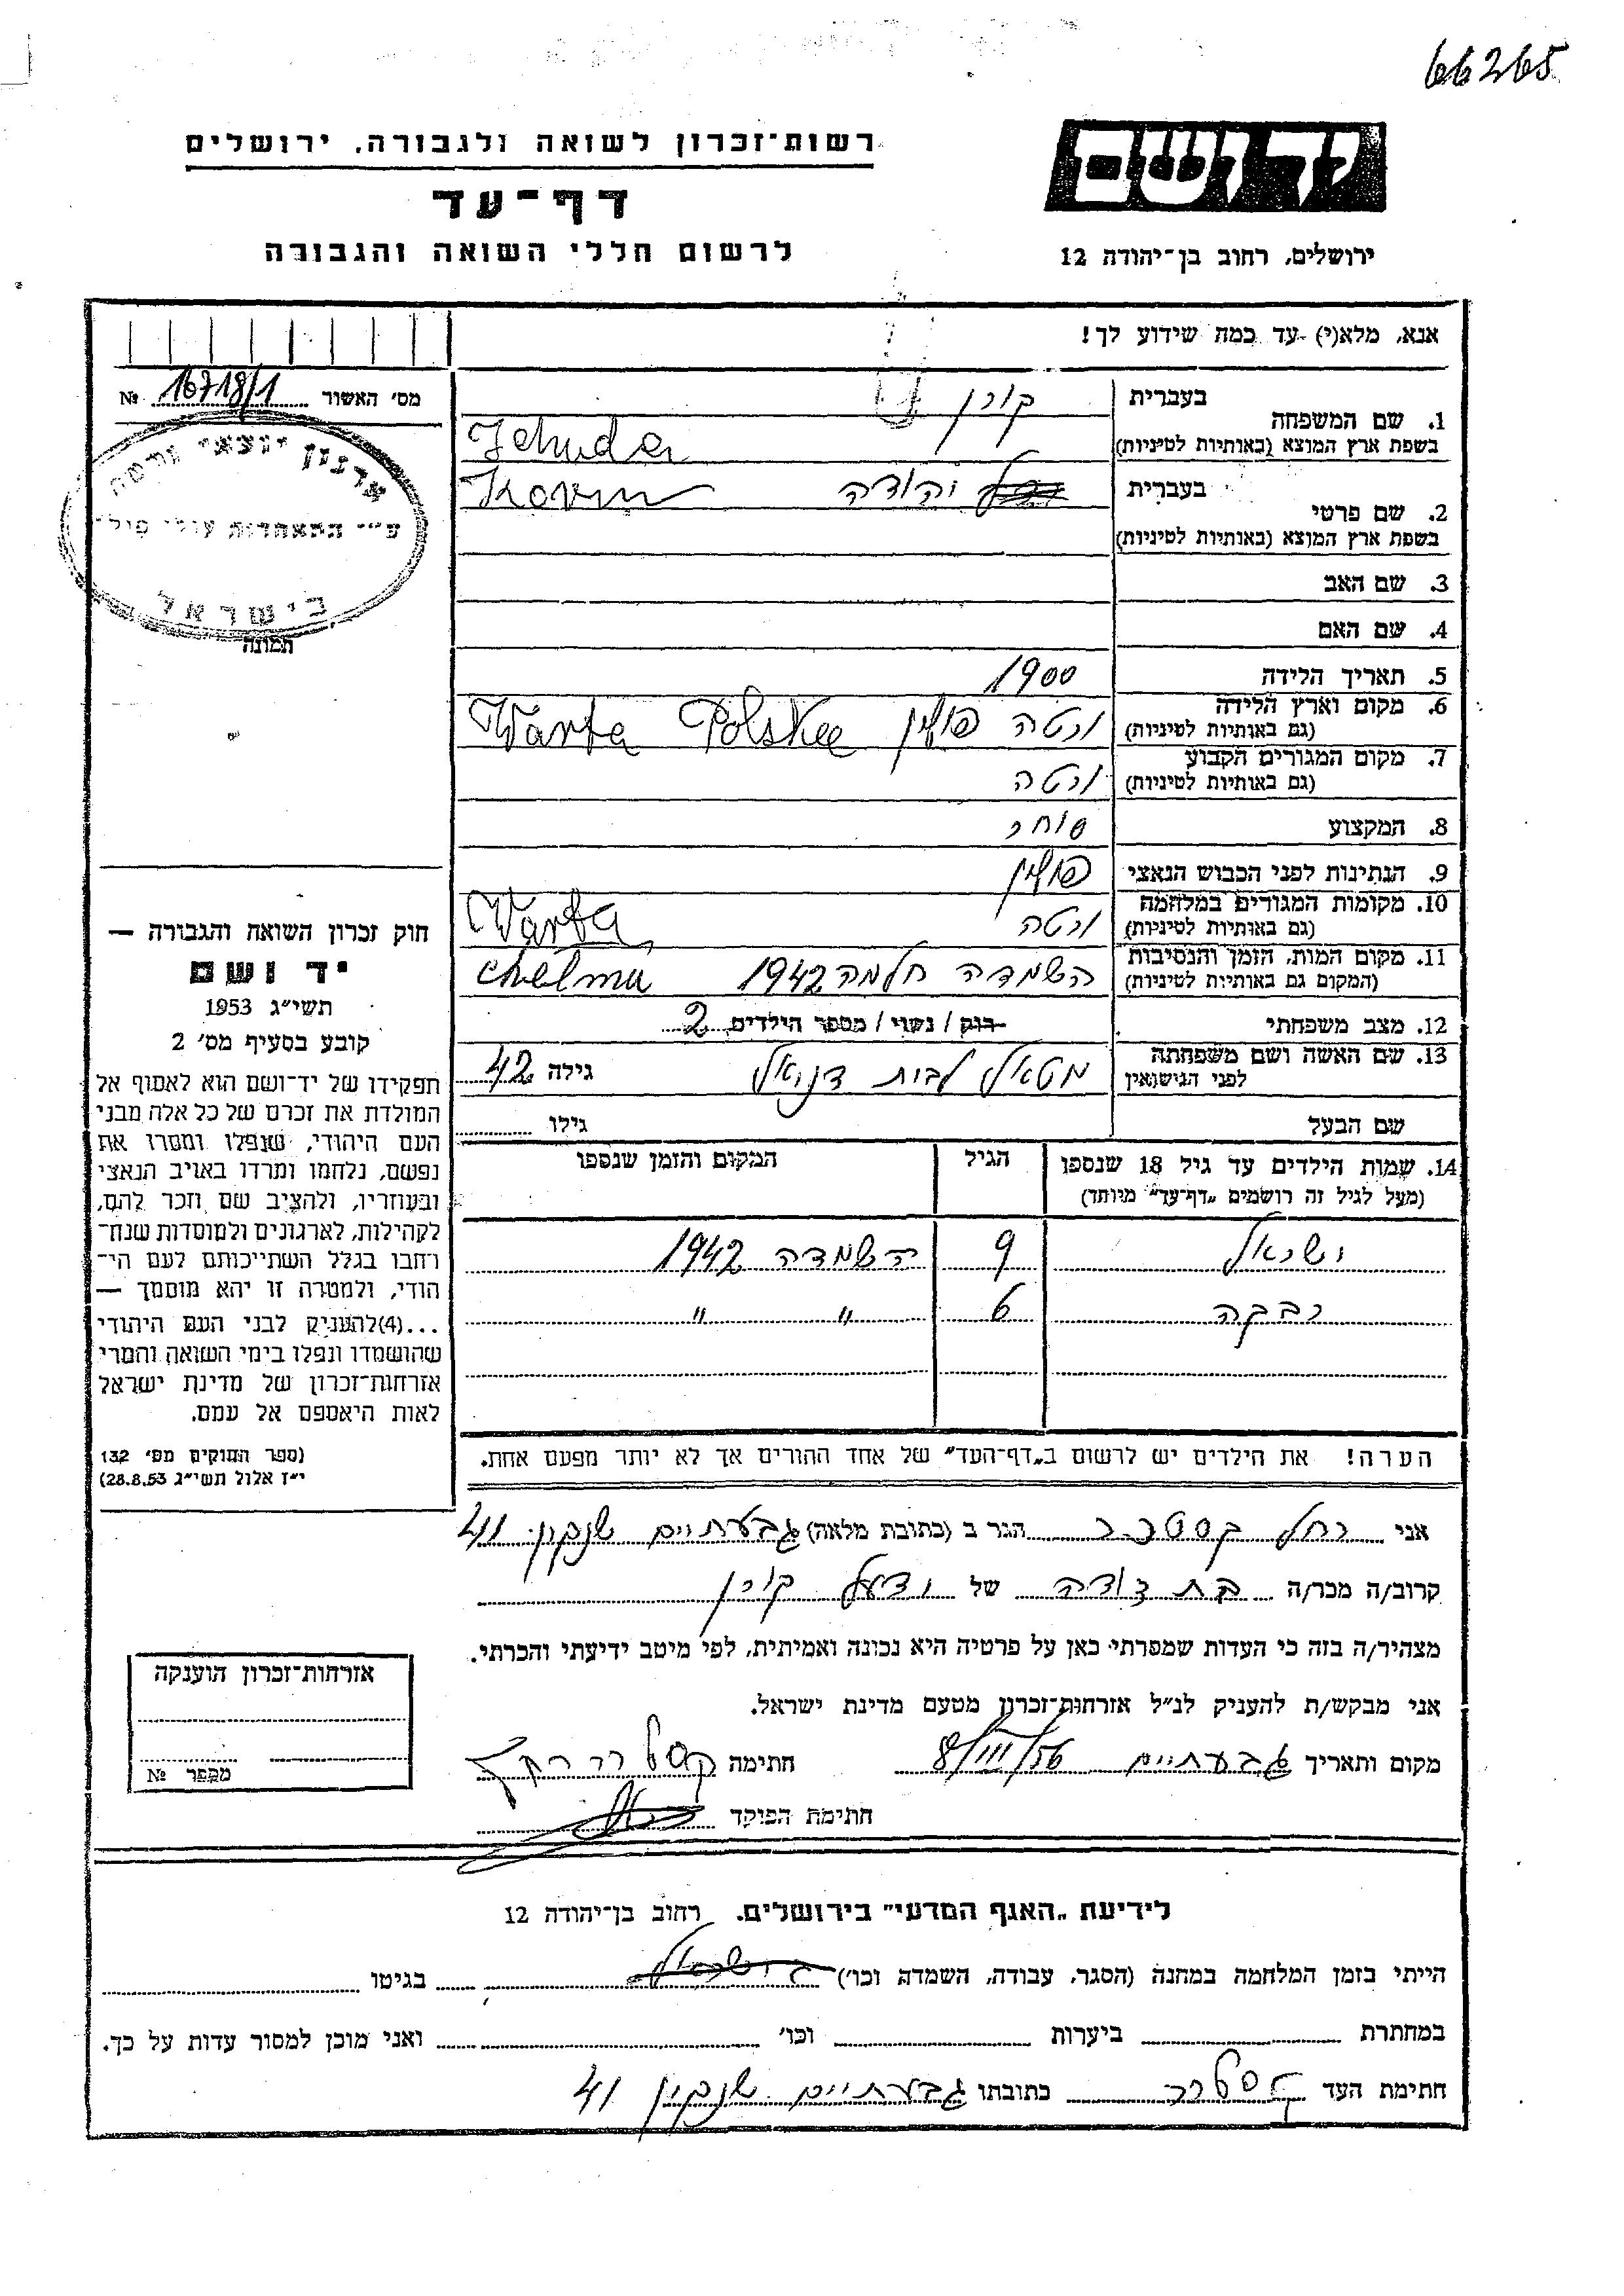 66265
רשות־זכרון לשואה ולגבורה, ירושלים
ידושם
דף־עד
לרשום חללי השואה והגבורה
ירושלים, רחוב בן־יהודה 12
אנא, מלא(י) עד כמה שידוע לך!
מס' האשור 16718/1 №
ארגון יוצאי ורטה
ע״י התאחדות עולי פול־
בישראל
תמונה
1. שם המשפחה בעברית קורן
בשפת ארץ המוצא (באותיות לטיניות) Jehuda
2. שם פרטי בעברית יהודה
Korn
בשפת ארץ המוצא (באותיות לטיניות)
3. שם האב
4. שם האם
5. תאריך הלידה 1900
6. מקום וארץ הלידה ורטה פולין Warta Polska
(גם באותיות לטיניות)
7. מקום המגורים הקבוע ורטה
(גם באותיות לטיניות)
8. המקצוע סוחר
9. הנתינות לפני הכבוש הנאצי פולין
10. מקומות המגורים במלחמה ורטה Warta
(גם באותיות לטיניות)
11. מקום המות, הזמן והנסיבות השמדה חלמה 1942 chelmu
(המקום גם באותיות לטיניות)
12. מצב משפחתי רווק / נשוי / מספר הילדים 2
13. שם האשה ושם משפחתה לבית דניאל גילה 42
לפני הנישואין
שם הבעל גילו
14. שמות הילדים עד גיל 18 שנספו הגיל המקום והזמן שנספו
(מעל לגיל זה רושמים „דף־עד״ מיוחד)
ישראל 9 השמדה 1942
רבקה 6 " "
הערה! את הילדים יש לרשום ב„דף־העד״ של אחד ההורים אך לא יותר מפעם אחת.
חוק זכרון השואה והגבורה —
יד ושם
תשי״ג 1953
קובע בסעיף מס' 2
תפקידו של יד־ושם הוא לאסוף אל
המולדת את זכרם של כל אלה מבני
העם היהודי, שנפלו ומסרו את
נפשם, נלחמו ומרדו באויב הנאצי
ובעוזריו, ולהציב שם וזכר להם,
לקהילות, לארגונים ולמוסדות שנח־
רחבו בגלל השתייכותם לעם הי־
הודי, ולמטרה זו יהא מוסמך —
...(4)להעניק לבני העם היהודי
שהושמדו ונפלו בימי השואה והמרי
אזרחות־זכרון של מדינת ישראל
לאות היאספם אל עמם.
(ספר החוקים מס' 132
י״ז אלול תשי״ג 28.8.53)
אני רחל קסטרר הגר ב (כתובת מלאה) גבעתיים שנקין 41
קרוב/ה מכר/ה בת דודה של קורן
מצהיר/ה בזה כי העדות שמסרתי כאן על פרטיה היא נכונה ואמיתית, לפי מיטב ידיעתי והכרתי.
אני מבקש/ת להעניק לנ״ל אזרחות־זכרון מטעם מדינת ישראל.
מקום ותאריך גבעתיים 8/III/56 חתימה
חתימת הפוקד
אזרחות־זכרון הוענקה
מספר №
לידיעת „האגף המדעי״ בירושלים, רחוב בן־יהודה 12
הייתי בזמן המלחמה במחנה (הסגר, עבודה, השמדה וכו') בגיטו
במחתרת ביערות וכו' ואני מוכן למסור עדות על כך.
חתימת העד כתובתו גבעתיים שנקין 41